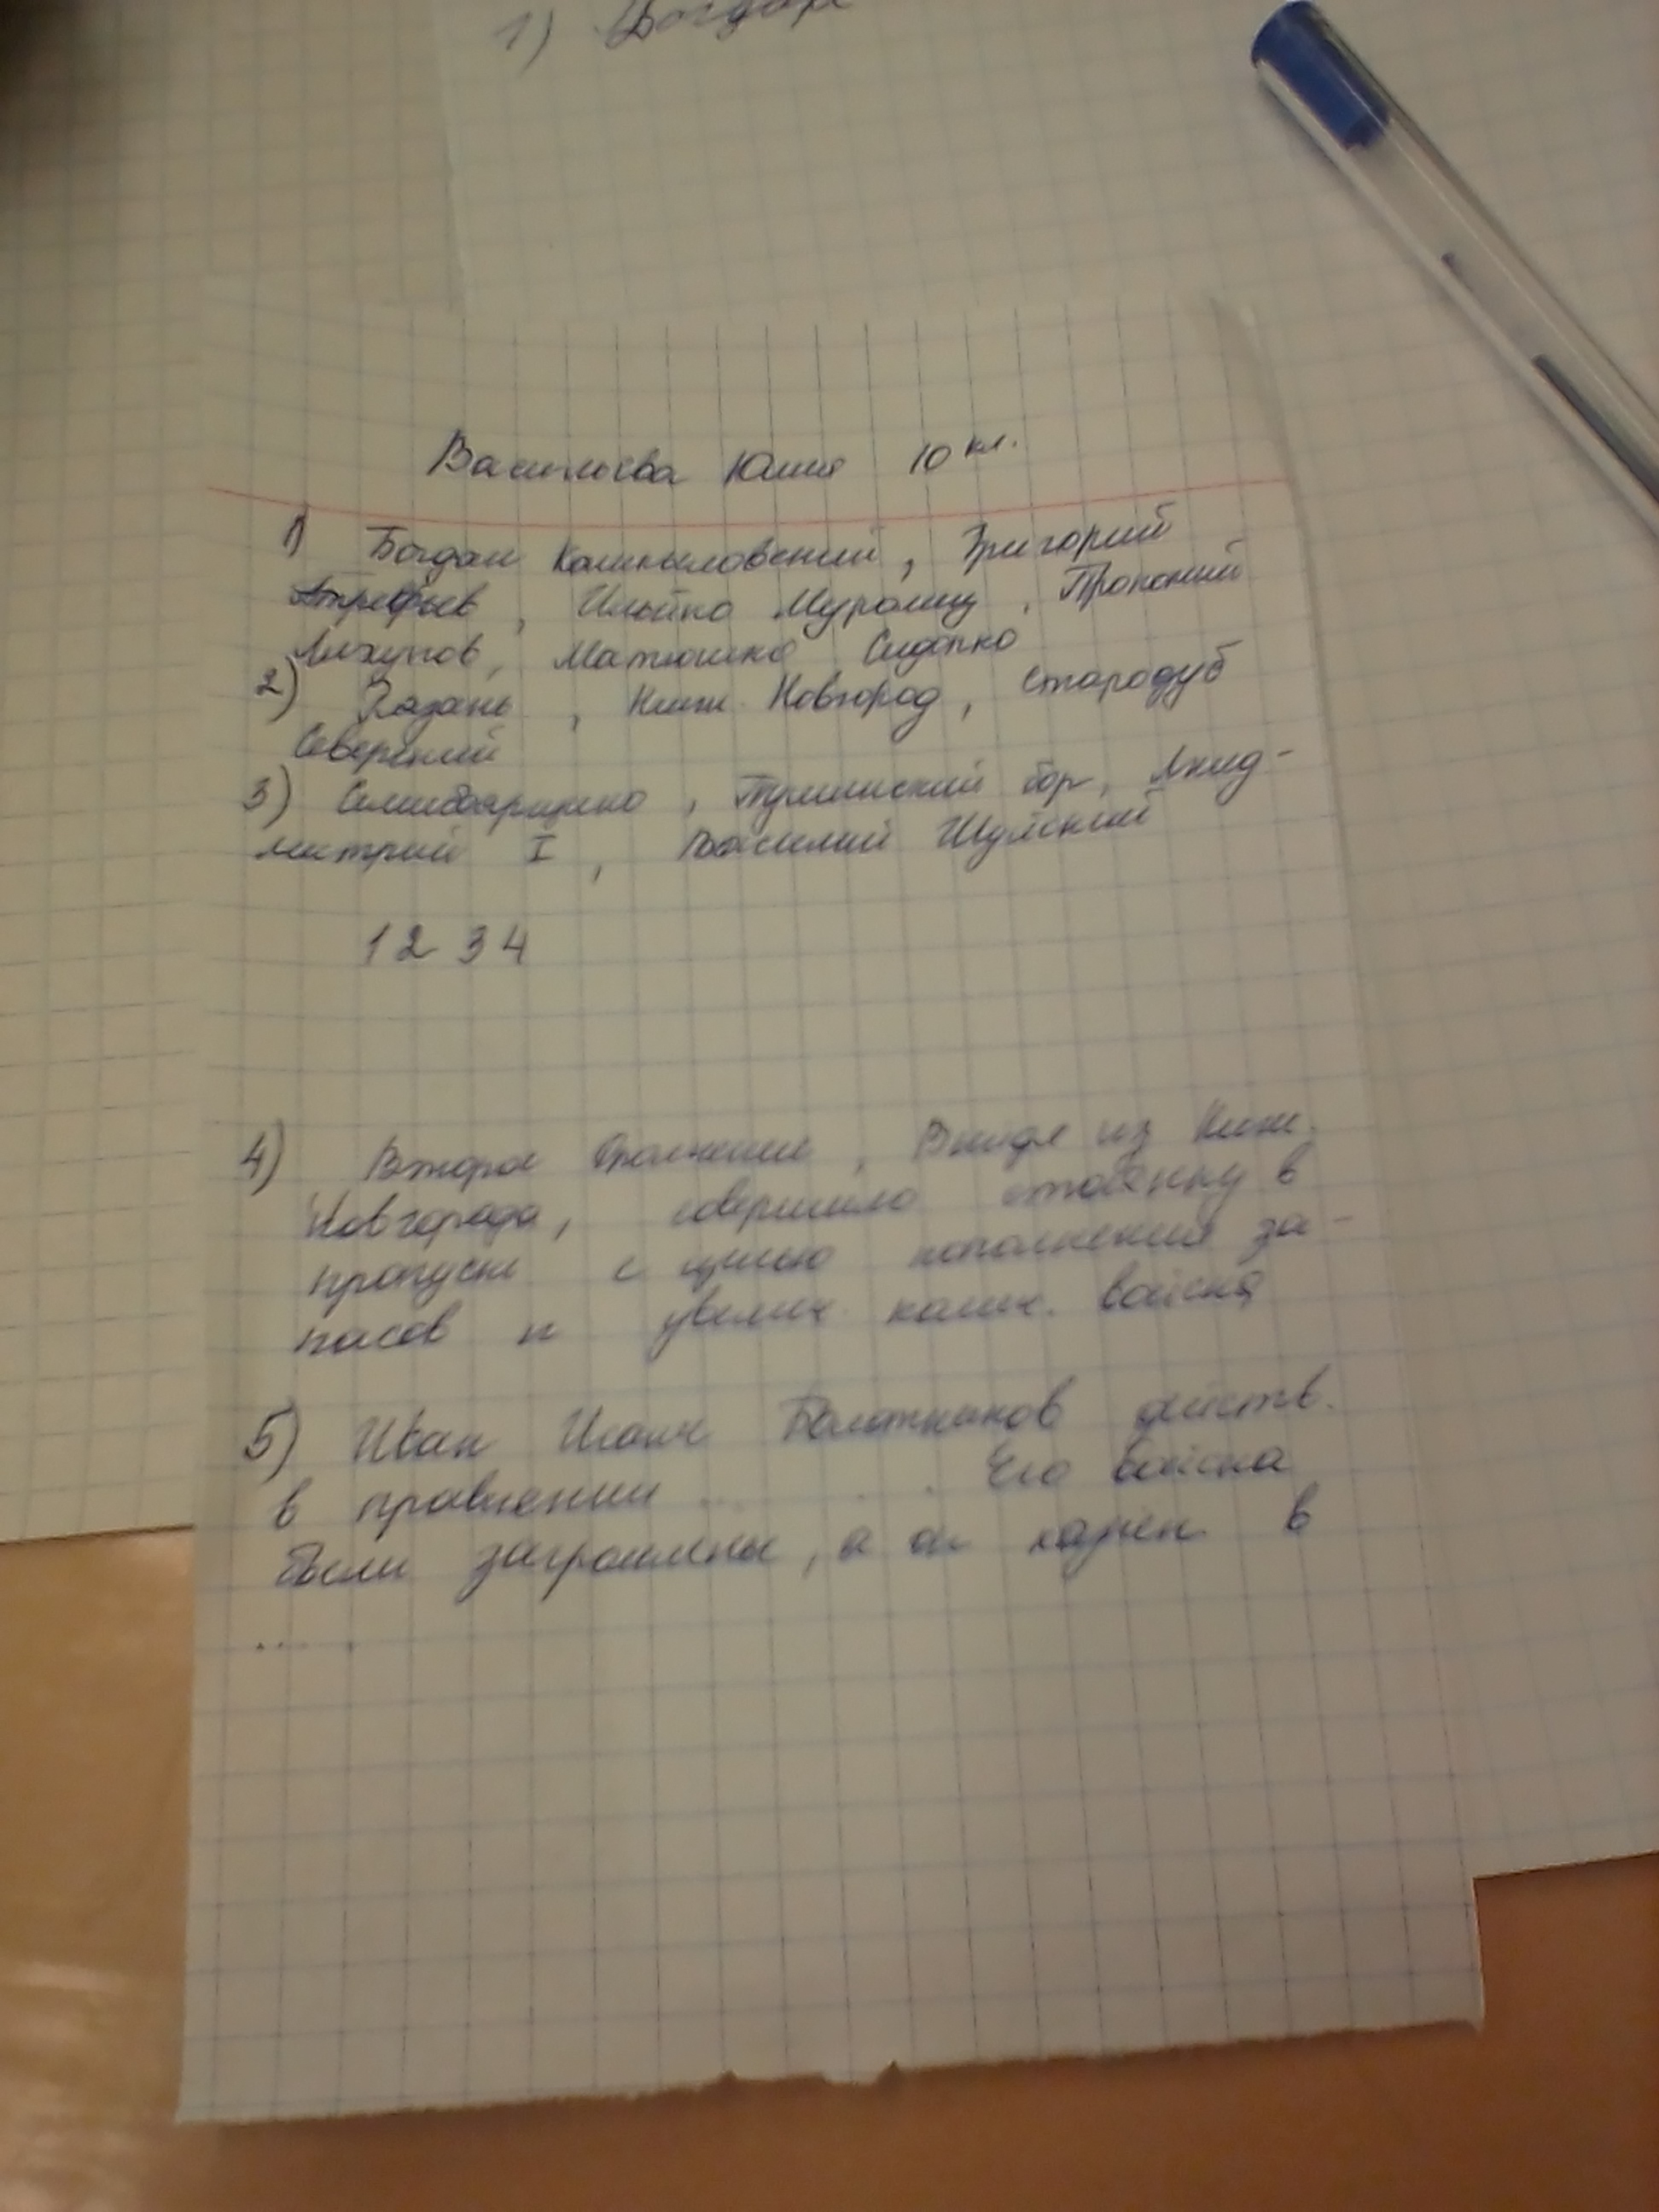 1) Богдан
Васильева Юлия 10 кл.
1) Богдан Григорий
Отрефьев, Илейко Муромец, Прокопий
Ляхунов, Матюшка
2) Казань, Ниж. Новгород, Стародуб
Северский
3) Семибоярщина, Тушинский вор, Лжед-
митрий I, Василий Шуйский
1 2 3 4
4) Второе ополчение, Выйдя из Ниж.
Новгорода, совершило стоянку в
с целью пополнения за-
пасов и увелич. колич. войска
5) Иван Исаич Болотников действ.
в правлении ... . Его войска
были а он казнен в
.... .